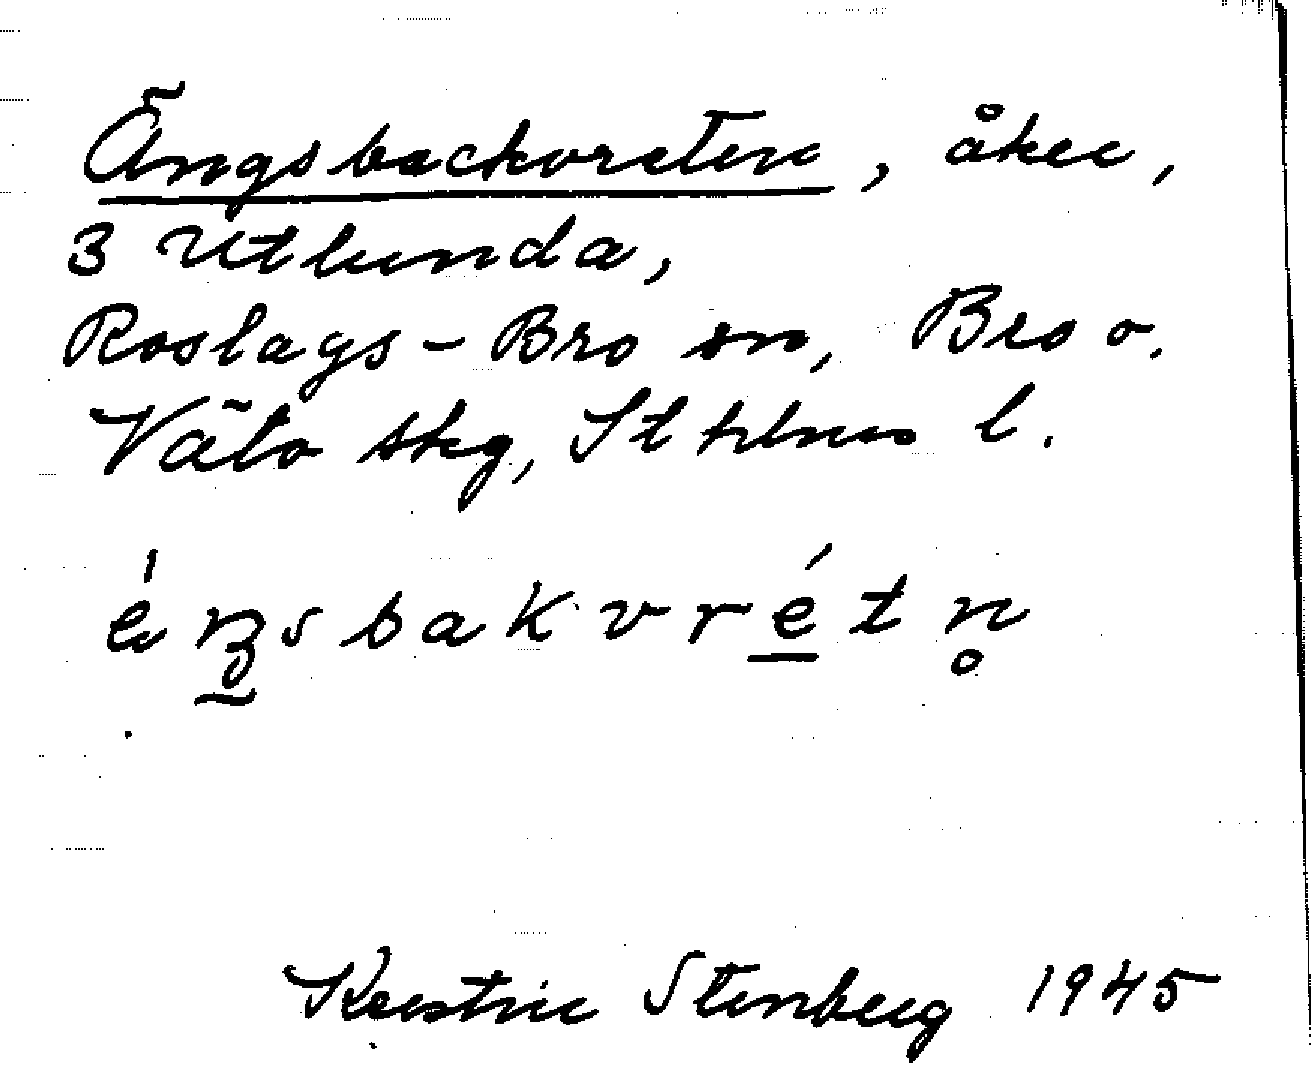 Ängsbackvreten, åker,
3 Utlunda,
Roslags-Bro sn, Bro o.
Vätö skg, Sthlms l.
é ŋ s b a k v r é t n̥
Kerstin Stenberg 1945